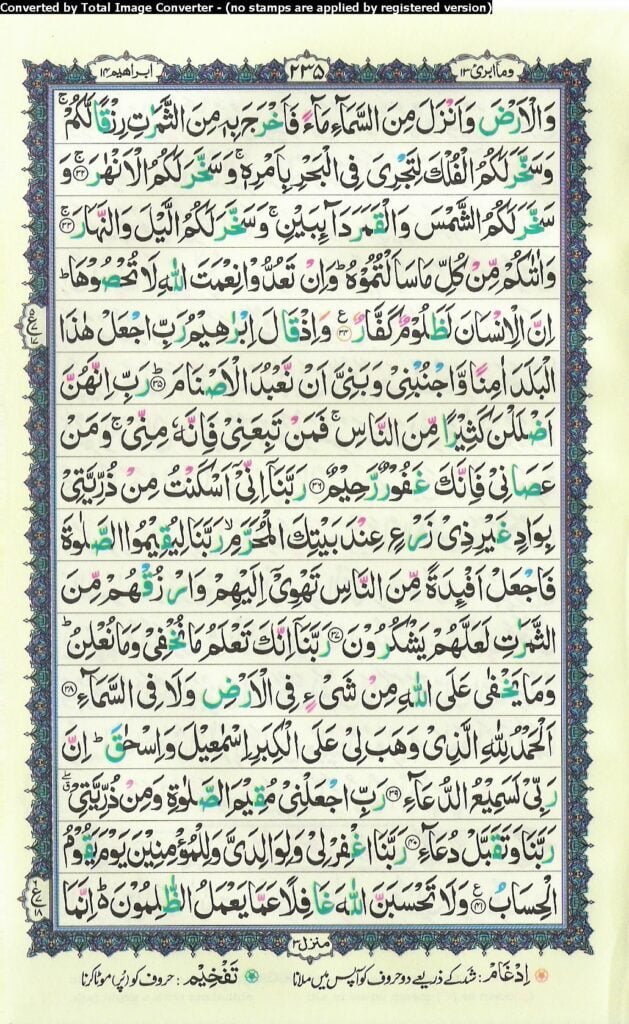 Converted by Total Image Converter - (no stamps are applied by registered version)
وما ابرئ ۱۳
۲۳۵
ابراهیم ۱۴
وَالْاَرْضَ وَاَنْزَلَ مِنَ السَّمَآءِ مَآءً فَاَخْرَجَ بِهٖ مِنَ الثَّمَرٰتِ رِزْقًا لَّكُمْ ۚ
وَسَخَّرَ لَكُمُ الْفُلْكَ لِتَجْرِیَ فِی الْبَحْرِ بِاَمْرِهٖ ۚ وَسَخَّرَ لَكُمُ الْاَنْهٰرَ ۚ ﴿۳۲﴾ وَ
سَخَّرَ لَكُمُ الشَّمْسَ وَالْقَمَرَ دَآىِٕبَیْنِ ۚ وَسَخَّرَ لَكُمُ الَّیْلَ وَالنَّهَارَ ۚ ﴿۳۳﴾
وَاٰتٰىكُمْ مِّنْ كُلِّ مَا سَاَلْتُمُوْهُ ؕ وَاِنْ تَعُدُّوْا نِعْمَتَ اللّٰهِ لَا تُحْصُوْهَا ؕ
اِنَّ الْاِنْسَانَ لَظَلُوْمٌ كَفَّارٌ ﴿۳۴﴾ ع وَاِذْ قَالَ اِبْرٰهِیْمُ رَبِّ اجْعَلْ هٰذَا
الْبَلَدَ اٰمِنًا وَّاجْنُبْنِیْ وَبَنِیَّ اَنْ نَّعْبُدَ الْاَصْنَامَ ؕ ﴿۳۵﴾ رَبِّ اِنَّهُنَّ
اَضْلَلْنَ كَثِیْرًا مِّنَ النَّاسِ ۚ فَمَنْ تَبِعَنِیْ فَاِنَّهٗ مِنِّیْ ۚ وَمَنْ
عَصَانِیْ فَاِنَّكَ غَفُوْرٌ رَّحِیْمٌ ﴿۳۶﴾ رَبَّنَاۤ اِنِّیْۤ اَسْكَنْتُ مِنْ ذُرِّیَّتِیْ
بِوَادٍ غَیْرِ ذِیْ زَرْعٍ عِنْدَ بَیْتِكَ الْمُحَرَّمِ ۙ رَبَّنَا لِیُقِیْمُوا الصَّلٰوةَ
فَاجْعَلْ اَفْىِٕدَةً مِّنَ النَّاسِ تَهْوِیْۤ اِلَیْهِمْ وَارْزُقْهُمْ مِّنَ
الثَّمَرٰتِ لَعَلَّهُمْ یَشْكُرُوْنَ ﴿۳۷﴾ رَبَّنَاۤ اِنَّكَ تَعْلَمُ مَا نُخْفِیْ وَمَا نُعْلِنُ ؕ
وَمَا یَخْفٰی عَلَی اللّٰهِ مِنْ شَیْءٍ فِی الْاَرْضِ وَلَا فِی السَّمَآءِ ﴿۳۸﴾
اَلْحَمْدُ لِلّٰهِ الَّذِیْ وَهَبَ لِیْ عَلَی الْكِبَرِ اِسْمٰعِیْلَ وَاِسْحٰقَ ؕ اِنَّ
رَبِّیْ لَسَمِیْعُ الدُّعَآءِ ﴿۳۹﴾ رَبِّ اجْعَلْنِیْ مُقِیْمَ الصَّلٰوةِ وَمِنْ ذُرِّیَّتِیْ ۖ
رَبَّنَا وَتَقَبَّلْ دُعَآءِ ﴿۴۰﴾ رَبَّنَا اغْفِرْ لِیْ وَلِوَالِدَیَّ وَلِلْمُؤْمِنِیْنَ یَوْمَ یَقُوْمُ
الْحِسَابُ ﴿۴۱﴾ ع وَلَا تَحْسَبَنَّ اللّٰهَ غَافِلًا عَمَّا یَعْمَلُ الظّٰلِمُوْنَ ؕ اِنَّمَا
منزل ۳
اِدْغَام: شد کے ذریعے دو حروف کو آپس میں ملانا
تَفْخِیْم: حروف کو (پُر) موٹا کرنا